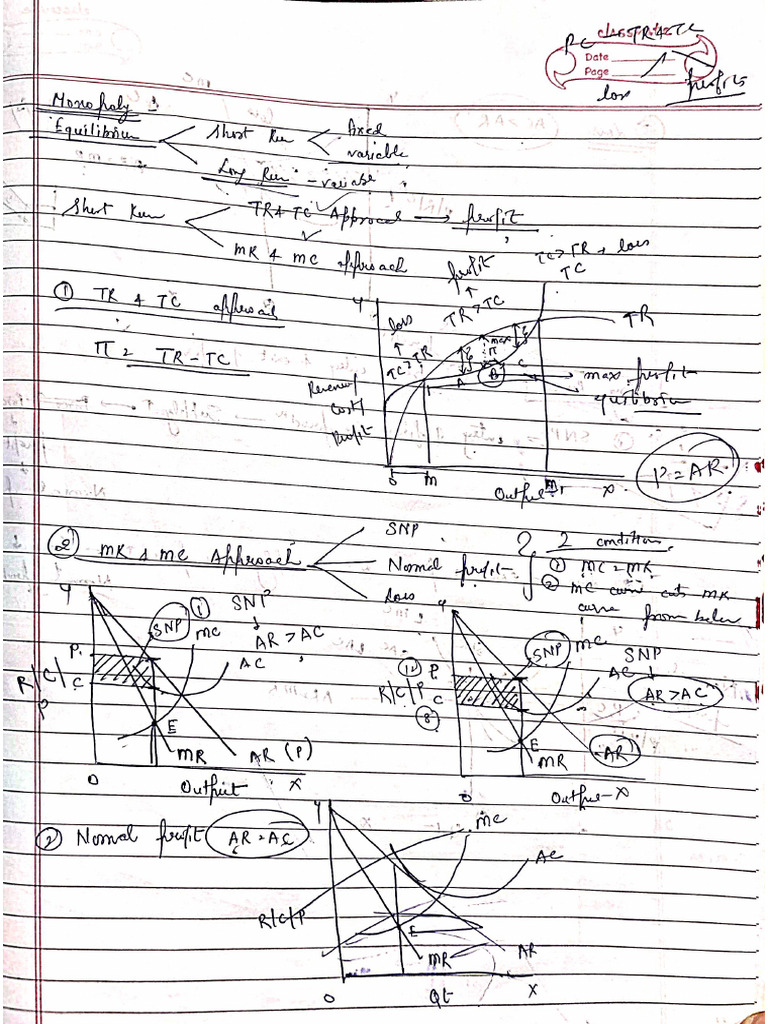 classmate
PC TR & TC
Date
Page
loss profits
Monopoly
Equilibrium Short Run Fixed
variable
Long Run - variable
Short Run TR & TC Approach → profit
MR & MC approach
TC > TR → loss
① TR & TC approach
π = TR - TC
Y
loss
TC > TR
profit
TR > TC
TC
TR
max
π
A B C
max profit
equilibrium
Revenue/
Cost/
Profit
O M M1 X
Output
P = AR
② MR & MC Approach
SNP
Normal profit
Loss
2 conditions
① MC = MR
② MC curve cuts MR
curve from below
Y
SNP
① SNP
AR > AC
MC
AC
P
C
R/C/P
E
MR
AR (P)
O Output X
Y
SNP
MC
AC
SNP
AR > AC
⑩ P
R/C/P C
⑧
E
MR
AR
O Output X
② Normal profit AR = AC
Y
MC
AC
R/C/P
E
MR
AR
O Qt X